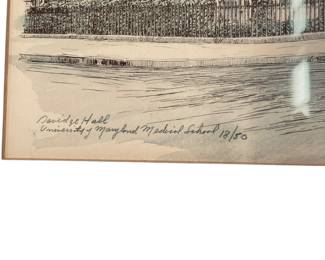 Davidge Hall
University of Maryland Medical School 18/50